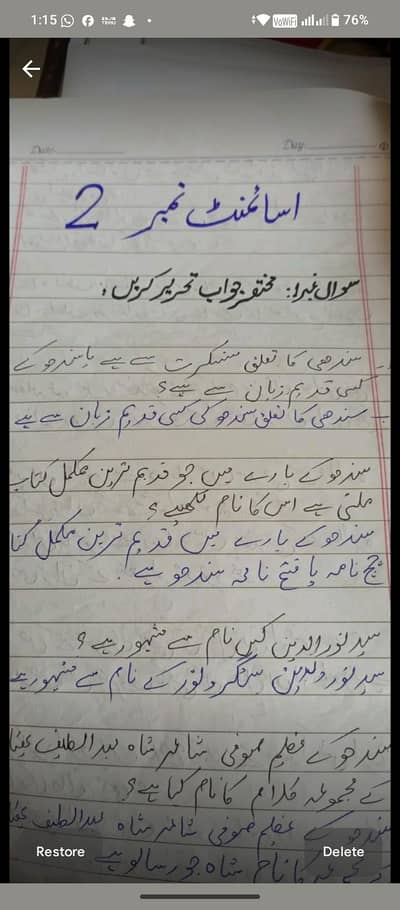 1:15
VoWiFi
76%
Date:
Day:
اسائمنٹ نمبر 2
سوال نمبر1: مختصر جواب تحریر کریں۔
سندھی کا تعلق سنسکرت سے ہے یا سندھو کے
کسی قدیم زبان سے ہے؟
سندھی کا تعلق سندھو کی کسی قدیم زبان سے ہے
سندھو کے بارے میں جو قدیم ترین مکمل کتاب
ملتی ہے اس کا نام لکھیے؟
سندھو کے بارے میں قدیم ترین مکمل کتا
چچ نامہ یا فتح نامہ سندھو ہے۔
سید نورالدین کس نام سے مشہور ہے؟
سید نورالدین ستگر ونور کے نام سے مشہور ہے
سندھو کے عظیم صوفی شاعر شاہ عبدالطیف
کے مجموعہ کلام کا نام کیا ہے؟
سندھو کے عظیم صوفی شاعر شاہ عبدالطیف
کا نام شاہ جو رسالو ہے
Restore
Delete